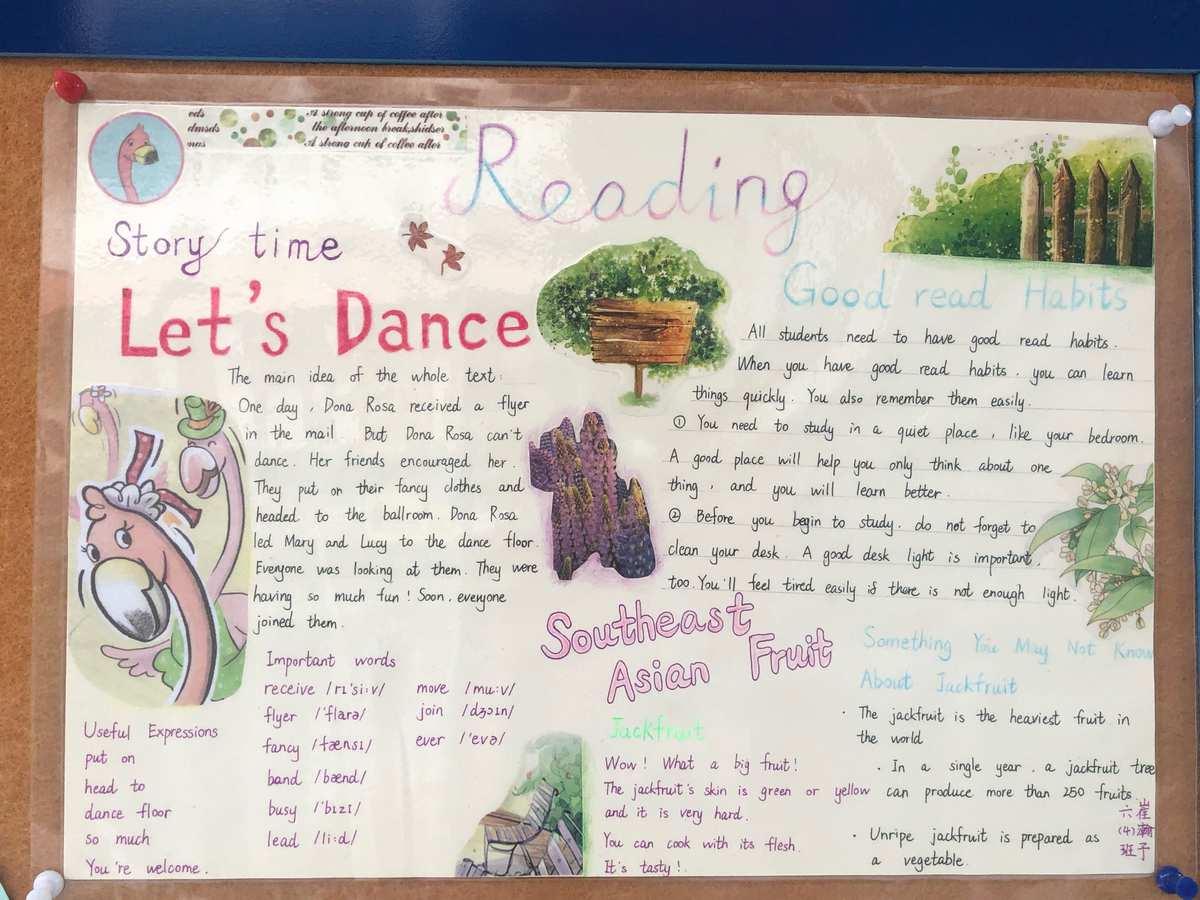 eds
dmsds
nas
A strong cup of coffee after
the afternoon break,shidser
A strong cup of coffee after
Reading
Story time
Let's Dance
The main idea of the whole text:
One day, Dona Rosa received a flyer
in the mail. But Dona Rosa can't
dance. Her friends encouraged her.
They put on their fancy clothes and
headed to the ballroom. Dona Rosa
led Mary and Lucy to the dance floor.
Everyone was looking at them. They were
having so much fun! Soon, everyone
joined them.
Important words
receive /rɪ'siːv/
flyer /'flaɪə/
fancy /fænsɪ/
band /bænd/
busy /'bɪzɪ/
lead /liːd/
move /muːv/
join /dʒɔɪn/
ever /'evə/
Useful Expressions
put on
head to
dance floor
so much
You're welcome.
Good read Habits
All students need to have good read habits.
When you have good read habits, you can learn
things quickly. You also remember them easily.
① You need to study in a quiet place, like your bedroom.
A good place will help you only think about one
thing, and you will learn better.
② Before you begin to study, do not forget to
clean your desk. A good desk light is important,
too. You'll feel tired easily if there is not enough light.
Southeast
Asian Fruit
Jackfruit
Wow! What a big fruit!
The jackfruit's skin is green or yellow
and it is very hard.
You can cook with its flesh.
It's tasty!
Something You May Not Know
About Jackfruit
· The jackfruit is the heaviest fruit in
the world
· In a single year, a jackfruit tree
can produce more than 250 fruits.
· Unripe jackfruit is prepared as
a vegetable.
六(4)班
崔瀚予